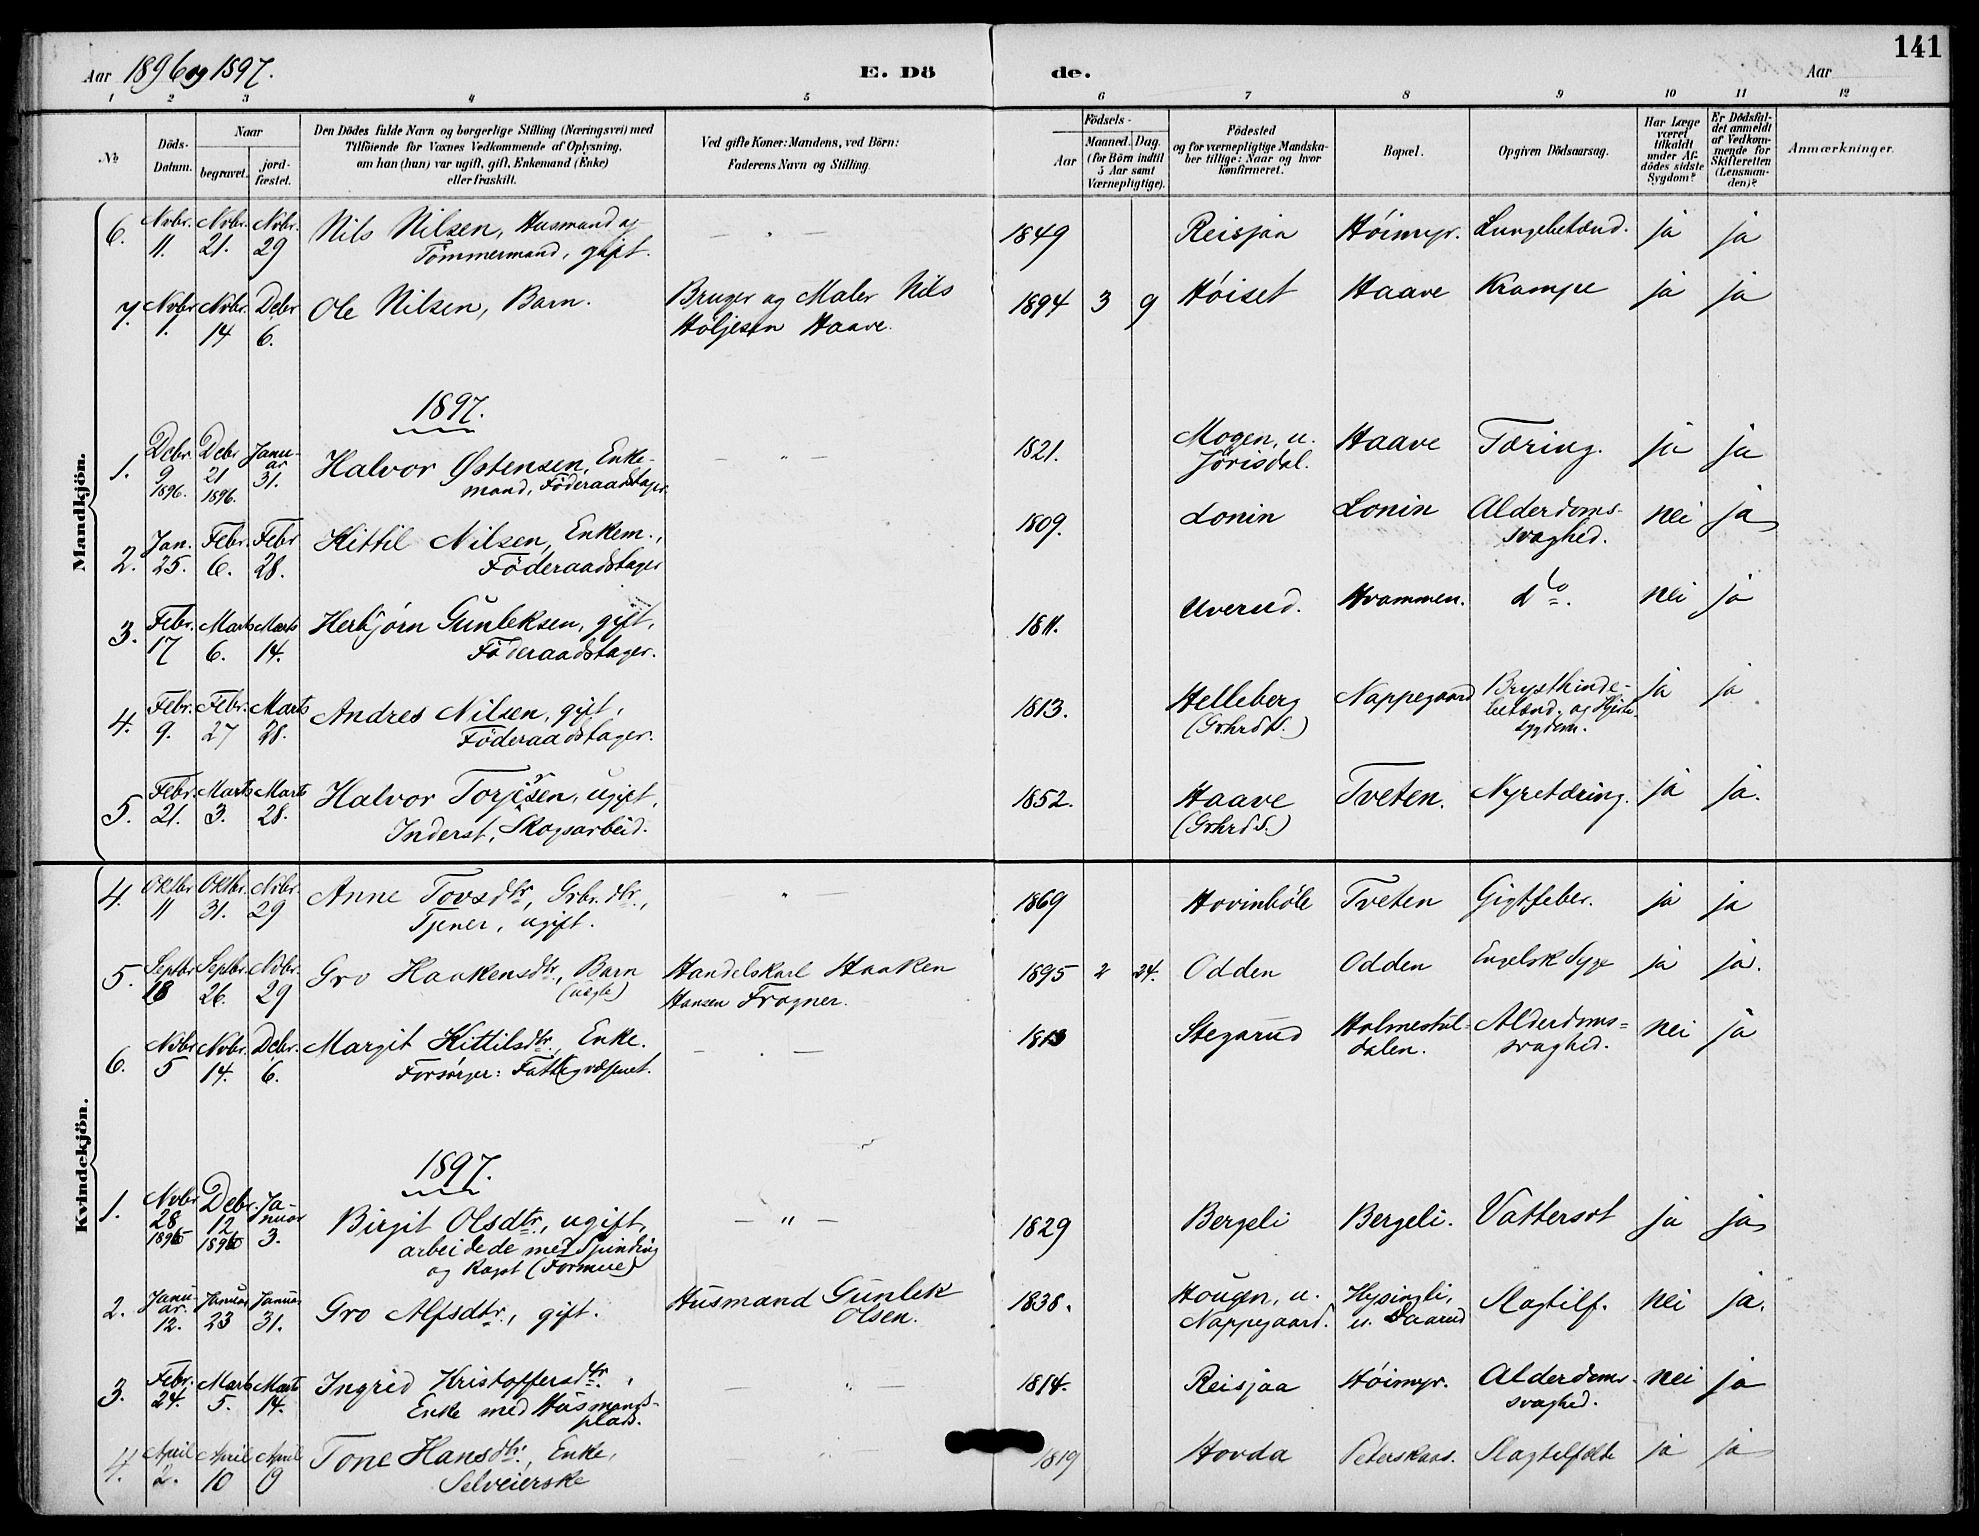 141
Aar 1896 og 1897. E. Dö de. Aar
1 2 3 4 5 6 7 8 9 10 11 12
No
Döds-Datum.
Naar
begravet.
jord-fæstet.
Den Dödes fulde Navn og borgerlige Stilling (Næringsvei) med
Tilföiende for Voxnes Vedkommende af Oplysning,
om han (hun) var ugift, gift, Enkemand (Enke)
eller fraskilt.
Ved gifte Koner: Mandens, ved Börn:
Faderens Navn og Stilling.
Födsels-
Aar
Maaned. Dag.
(for Börn indtil
5 Aar samt
Værnepligtige).
Födested
og for værnepligtige Mandska-
ber tillige: Naar og hvor
konfirmeret.
Bopæl.
Opgiven Dödsaarsag.
Har Læge
været
tilkaldt
under Af-
dödes sidste
Sygdom?
Er Dödsfal-
det anmeldt
af Vedkom-
mende for
Skifteretten
(Lensman-
den)?
Anmærkninger.
Mandkjön.
6. Novbr. 11. Novbr. 21. Novbr. 29 Nils Nilsen, Husmand og
Tömmermand, gift. — " — 1849 Reisjaa Höimyr. Lungebetænd. ja ja
7. Novbr 1. Novbr. 14 Debr 6. Ole Nilsen, Barn. Bruger og Maler Nils
Höljesen Haave. 1894 3 9 Höiset Haave Krampe ja ja
1897.
1. Debr 9 1896. Debr 21 1896. Janu-ar 31. Halvor Østensen, Enke-
mand, Föderaadstager 1821. Mogen, u.
Jörisdal. Haave Tæring. ja ja
2. Jan. 25. Febr. 6. Febr 28. Kittil Nilsen, Enkem.,
Föderaadstager 1809. Lonin Lonin Alderdoms-
svaghed. nei ja
3. Febr. 17 Marts 6. Marts 14. Herbjörn Gunleksen, gift,
Föderaadstager. 1811. Uverud. Hvammen. do. nei ja
4. Febr. 9. Febr. 27 Marts 28. Andres Nilsen, gift,
Föderaadstager. 1813. Helleberg
(Grhrd S.) Nappegaard Brysthinde-
betænd. og Hjerte-
sygdom. ja ja
5. Febr. 21. Marts 3. Marts 28. Halvor Torjisen, ugift,
Inderst, Skogsarbeid. 1852. Haave
(Grhrd S.) Tveten. Nyretæring. ja ja.
Kvindekjön.
4. Oktbr 11 Oktbr. 31. Novbr. 29 Anne Tovsdtr, Grbr. dtr.,
Tjener, ugift. " — 1869 Hovinböle Tveten Gigtfeber. ja ja
5. Septbr 18 Septbr. 26. Novbr. 29 Gro Haakensdtr., Barn
(uægte) Handelskarl Haaken
Hansen Frogner. 1895 2 24. Odden Odden Engelsk Syge ja ja.
6. Novbr 5 Novbr. 14. Debr. 6. Margit Kittilsdtr., Enke.
Forsörger: Fattigvæsenet. — " — 1813 Stegarud Holmestul-
dalen. Alderdoms-
svaghed. nei ja
1897.
1. Novbr 28 1896 Debr. 12 1896 Ja-nuar 3. Birgit Olsdtr., ugift,
arbeidede med Spinding
og Ragst (Formue) — " — 1829 Bergeli Bergeli. Vattersot ja ja
2. Janu-ar. 12. Januar 23 Januar 31. Gro Alfsdtr., gift. Husmand Gunlek
Olsen. 1838. Hougen, u.
Nappegaard. Hysingli,
u. Daarud Slagtilf. nei ja.
3. Febr. 24. Marts 5. Marts 14. Ingrid Kristoffersdtr.,
Enke med Husmands-
plads. — " — 1814. Reisjaa Höimyr. Alderdoms-
svaghed. nei ja
4. April 2. April 10 April 19 Tone Hansdtr., Enke,
Selveierske 1819 Hovda Peterskaas. Slagtilfælde ja ja